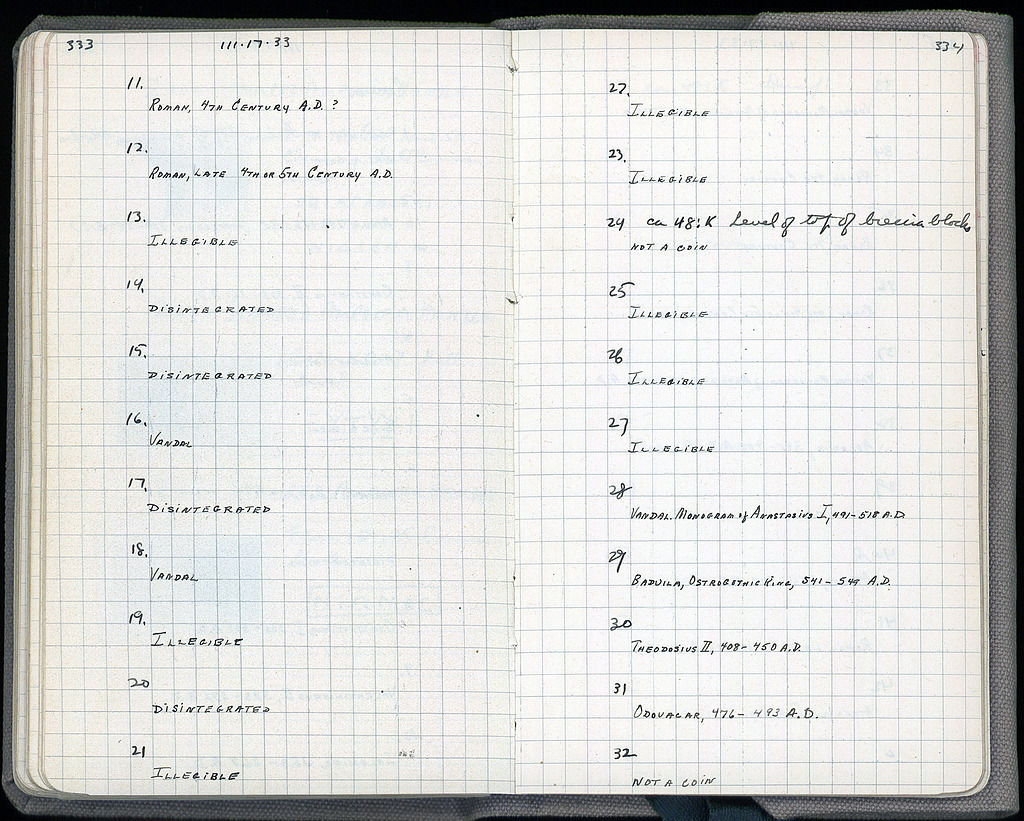 333 111·17·33
11.
ROMAN, 4TH CENTURY A.D. ?
12.
ROMAN, LATE 4TH OR 5TH CENTURY A.D.
13.
ILLEGIBLE
14.
DISINTEGRATED
15.
DISINTEGRATED
16.
VANDAL
17.
DISINTEGRATED
18.
VANDAL
19.
ILLEGIBLE
20
DISINTEGRATED
21
ILLEGIBLE
334
22.
ILLEGIBLE
23.
ILLEGIBLE
24 ca 48:K Level of top of breccia blocks
NOT A COIN
25
ILLEGIBLE
26
ILLEGIBLE
27
ILLEGIBLE
28
VANDAL. MONOGRAM of ANASTASIUS I, 491-518 A.D.
29
BADUILA, OSTROGOTHIC KING, 541-549 A.D.
30
THEODOSIUS II, 408-450 A.D.
31
ODOVACAR, 476-493 A.D.
32
NOT A COIN